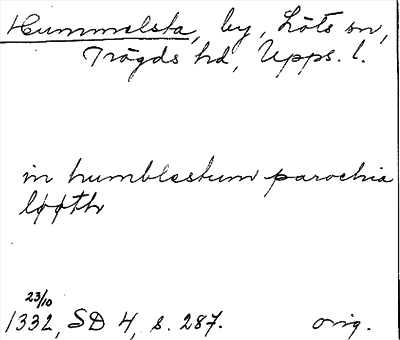 Hummelsta, by, Löts sn,
Trögds hd, Upps. l.
in humblestum parochia
løøth
23/10
1332, SD 4, s. 287. orig.